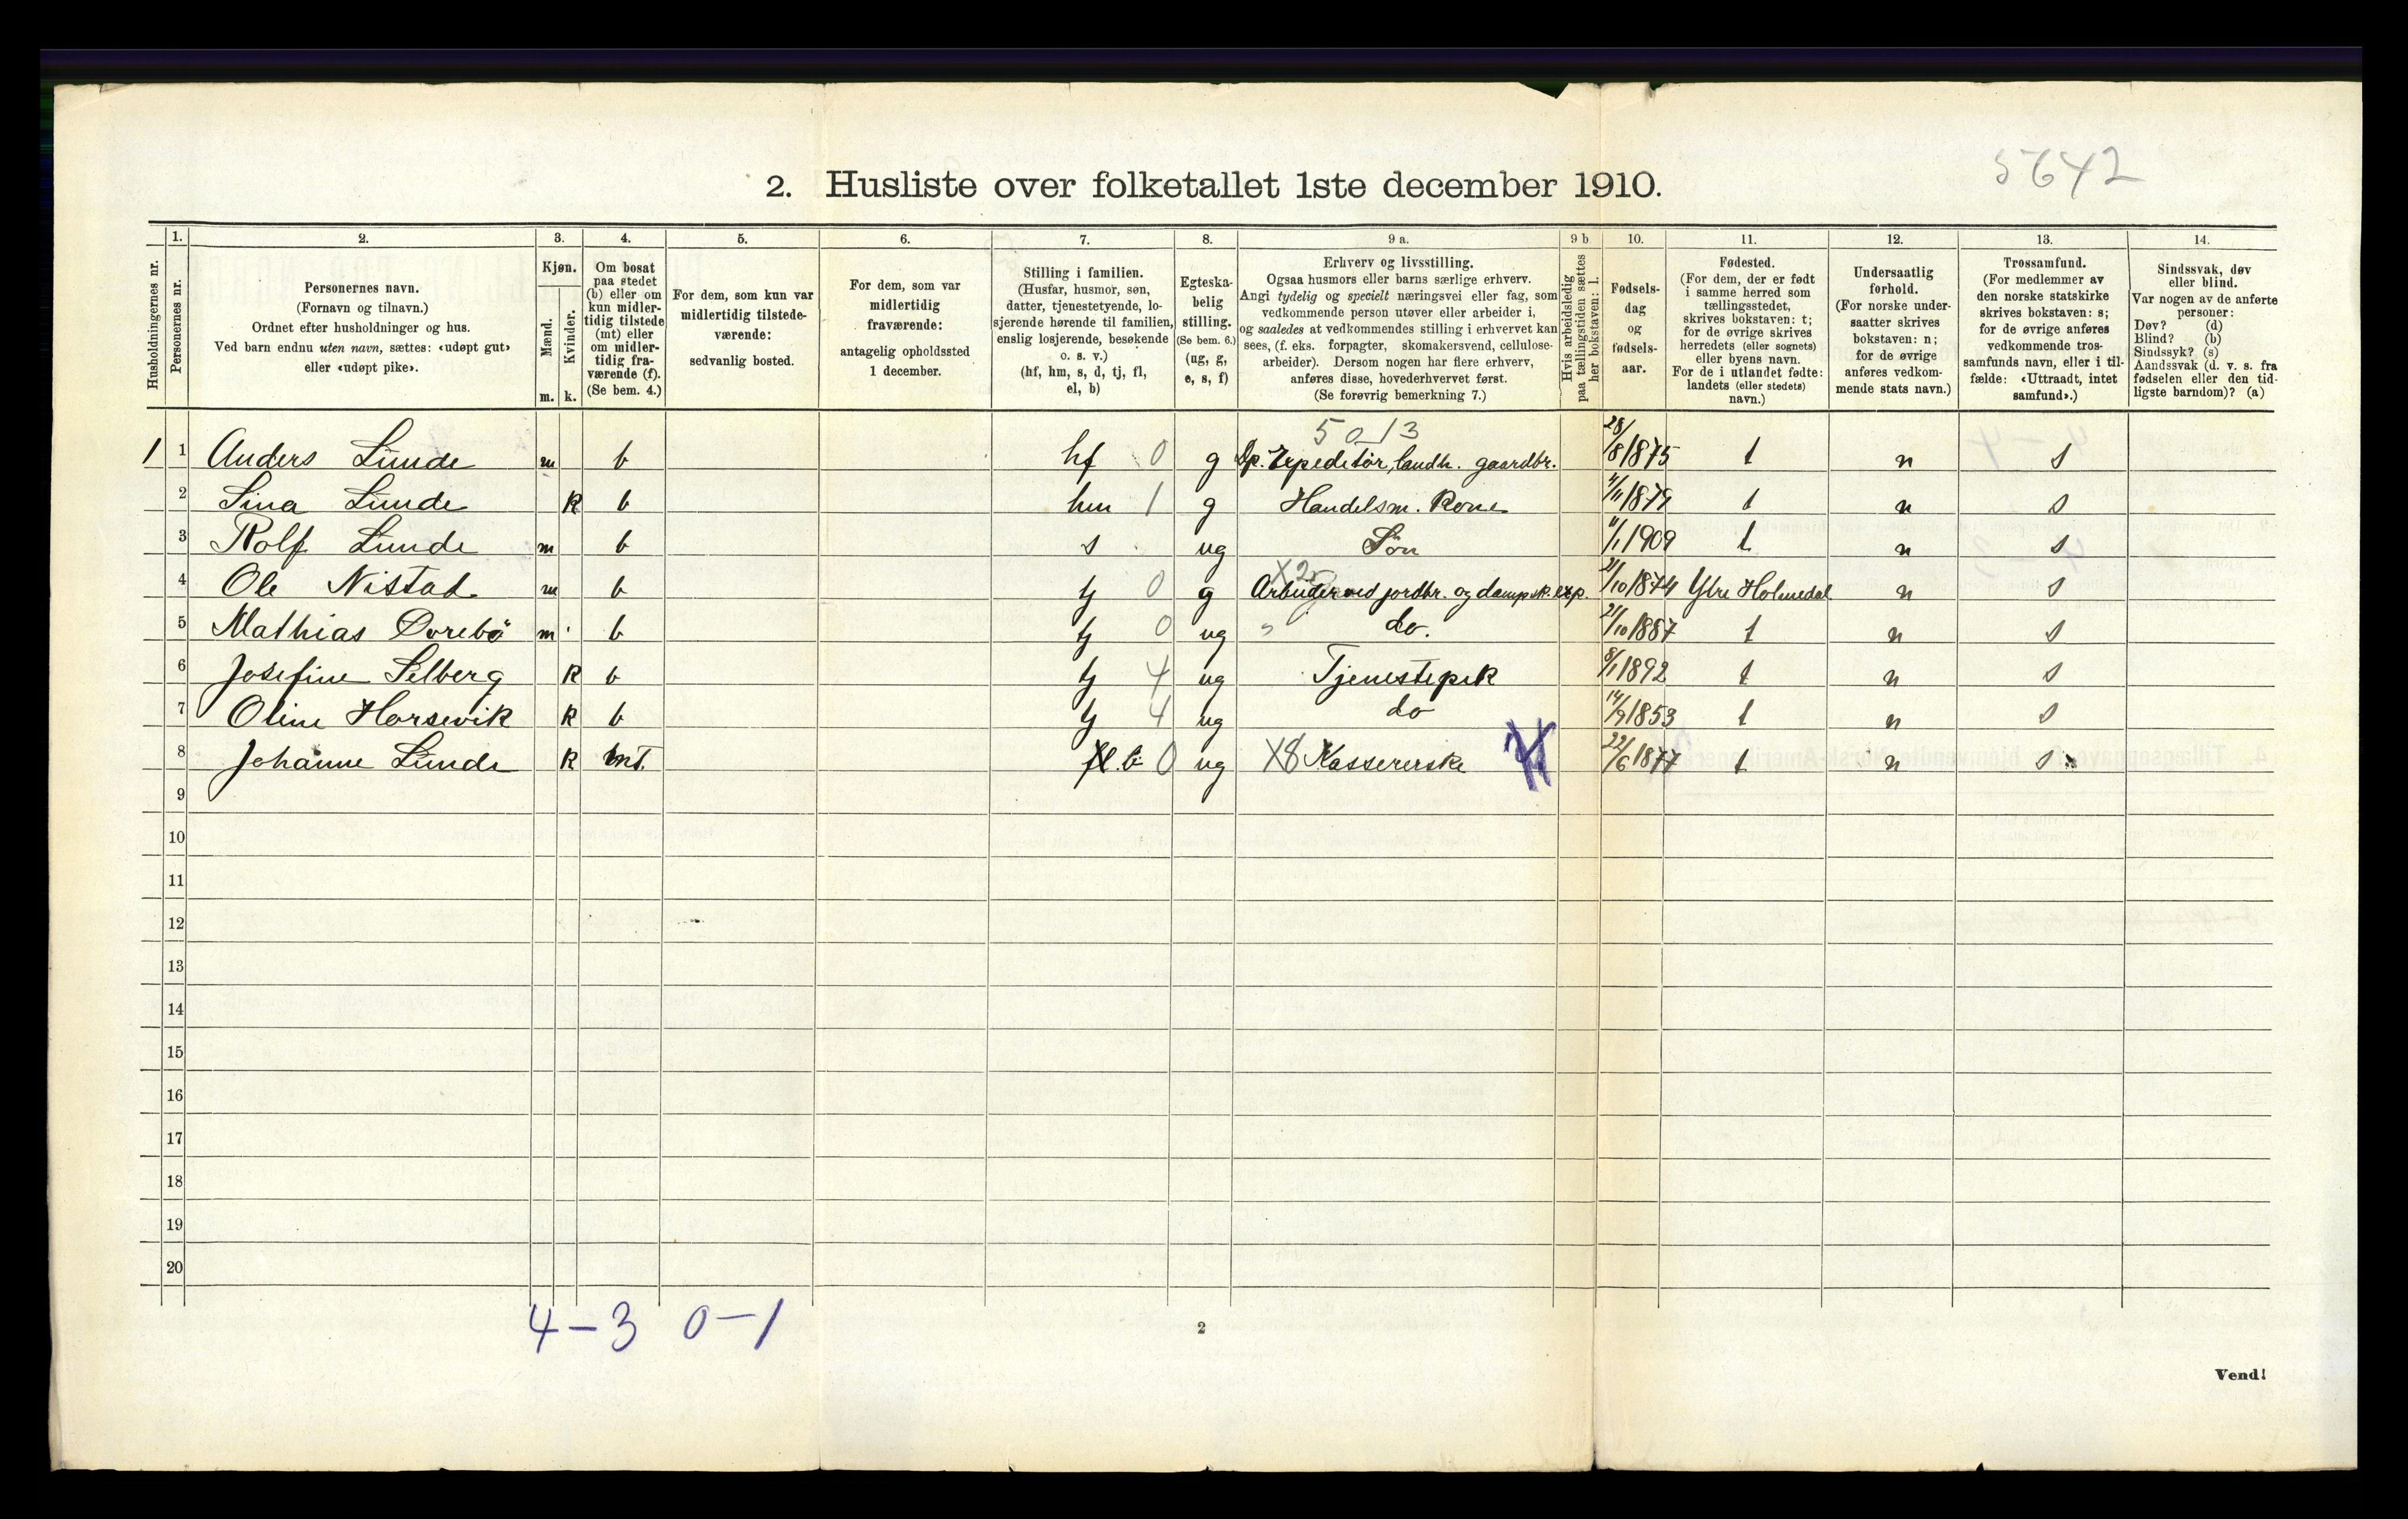 5642
2. Husliste over folketallet 1ste december 1910.
Husholdningernes nr.
1.
Personernes nr.
2.
Personernes navn.
(Fornavn og tilnavn.)
Ordnet efter husholdninger og hus.
Ved barn endnu uten navn, sættes: «udøpt gut»
eller «udøpt pike».
3.
Kjøn.
Mænd.
Kvinder.
m. k.
4.
Om bosat
paa stedet
(b) eller om
kun midler-
tidig tilstede
(mt) eller
om midler-
tidig fra-
værende (f).
(Se bem. 4.)
5.
For dem, som kun var
midlertidig tilstede-
værende:
sedvanlig bosted.
6.
For dem, som var
midlertidig
fraværende:
antagelig opholdssted
1 december.
7.
Stilling i familien.
(Husfar, husmor, søn,
datter, tjenestetyende, lo-
sjerende hørende til familien,
enslig losjerende, besøkende
o. s. v.)
(hf, hm, s, d, tj, fl,
el, b)
8.
Egteska-
belig
stilling.
(Se bem. 6.)
(ug, g,
e, s, f)
9 a.
Erhverv og livsstilling.
Ogsaa husmors eller barns særlige erhverv.
Angi tydelig og specielt næringsvei eller fag, som
vedkommende person utøver eller arbeider i,
og saaledes at vedkommendes stilling i erhvervet kan
sees, (f. eks. forpagter, skomakersvend, cellulose-
arbeider). Dersom nogen har flere erhverv,
anføres disse, hovederhvervet først.
(Se forøvrig bemerkning 7.)
9 b
Hvis arbeidsledig
paa tællingstiden sættes
her bokstaven: l.
10.
Fødsels-
dag
og
fødsels-
aar.
11.
Fødested.
(For dem, der er født
i samme herred som
tællingsstedet,
skrives bokstaven: t;
for de øvrige skrives
herredets (eller sognets)
eller byens navn.
For de i utlandet fødte:
landets (eller stedets)
navn.)
12.
Undersaatlig
forhold.
(For norske under-
saatter skrives
bokstaven: n;
for de øvrige
anføres vedkom-
mende stats navn.)
13.
Trossamfund.
(For medlemmer av
den norske statskirke
skrives bokstaven: s;
for de øvrige anføres
vedkommende tros-
samfunds navn, eller i til-
fælde: «Uttraadt, intet
samfund».)
14.
Sindssvak, døv
eller blind.
Var nogen av de anførte
personer:
Døv? (d)
Blind? (b)
Sindssyk? (s)
Aandssvak (d. v. s. fra
fødselen eller den tid-
ligste barndom)? (a)
5013
1 1 Anders Lunde m b hf 0 g Dp. Expeditör, landh. gaardbr. 28/8 1875 t n s
2 Sina Lunde k b hm 1 g Handelsm. Kone 4/11 1879 t n s
3 Rolf Lunde m b s ug Sön 11/1 1909 t n s
4 Ole Nistad m b tj 0 g Arbeider ved jordbr. og dampsk. exp. 21/10 1874 Ytre Holmedal n s
5 Mathias Dorebö m b tj 0 ug " do. 21/10 1887 t n s
6 Josefine Selberg k b tj 4 ug Tjenestepik 8/1 1892 t n s
7 Oline Horsevik k b tj 4 ug do 14/9 1853 t n s
8 Johanne Lunde k mt. b 0 ug X8 Kassererske 22/6 1877 t n s
9
10
11
12
13
14
15
16
17
18
19
20
4-3 0-1
2
Vend!